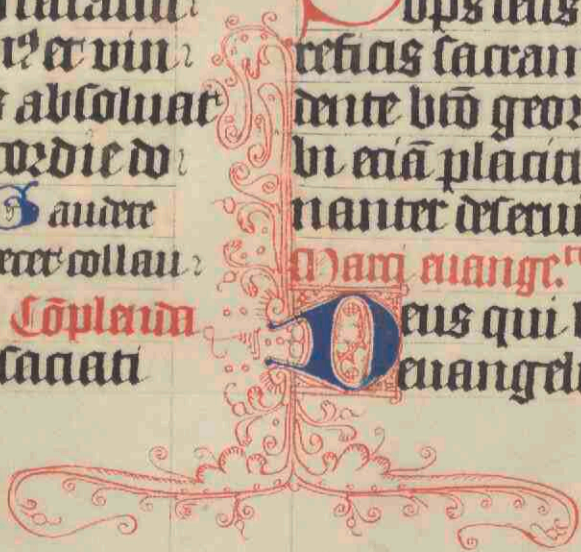 et vin
absoluat
cordie do
Gaudete
collau
Cōplenda
saciati
reficis sacran
dente btō geor
bi eciā placitu
nanter deseru
Marci euange.
Deus qui
euangeli